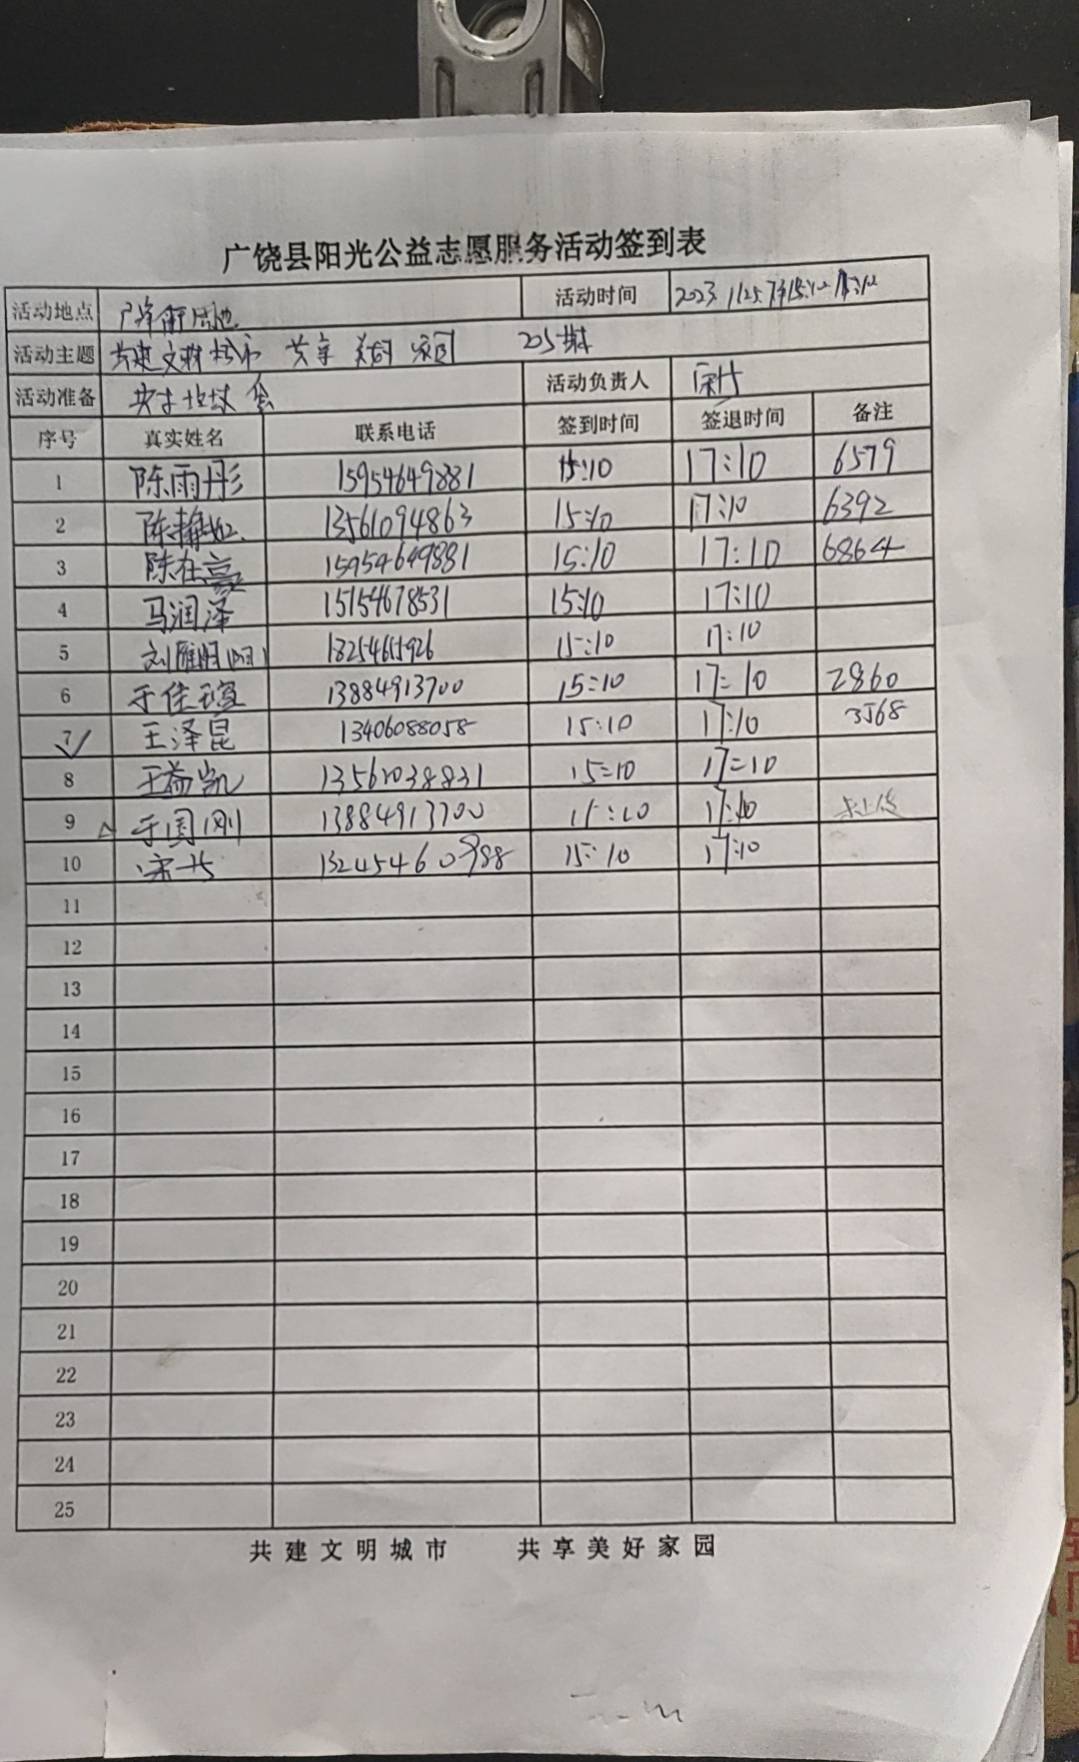 广饶县阳光公益志愿服务活动签到表
活动地点 活动时间 2023.11.25.下午15:10
活动主题 共建文明城市 共享美好家园 205期
活动准备 活动负责人
序号 真实姓名 联系电话 签到时间 签退时间 备注
1 陈雨彤 15954649881 15:10 17:10 6579
2 陈静如 13561094863 15:10 17:10 6392
3 陈在豪 15954649881 15:10 17:10 6864
4 马润泽 15154678531 15:10 17:10
5 刘雁 15:10 17:10
6 于佳瑄 13884913700 15:10 17:10 2860
7 王泽昆 13406088058 15:10 17:10 3568
8 王益凯 13561038831 15:10 17:10
9 于国刚 13884913700 15:10 17:10
10 15:10 17:10
11
12
13
14
15
16
17
18
19
20
21
22
23
24
25
共建文明城市 共享美好家园